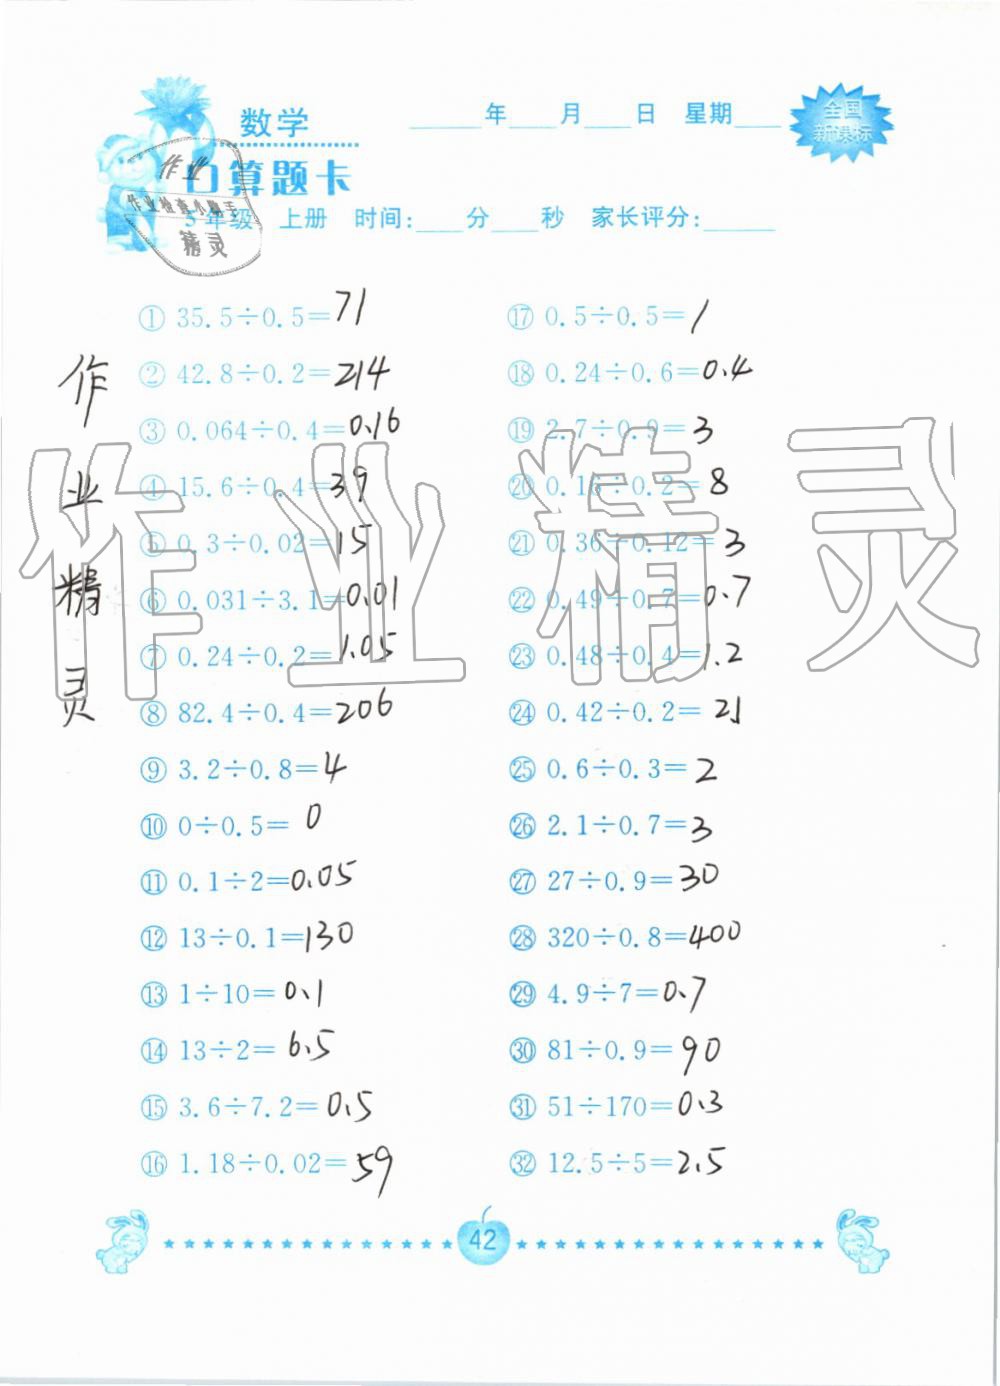 数学
____年____月____日 星期____
全国
新课标
口算题卡
作业
作业检查小助手
精灵
5年级 上册 时间:____分____秒 家长评分:____
① 35.5÷0.5=71
② 42.8÷0.2=214
③ 0.064÷0.4=0.16
④ 15.6÷0.4=39
⑤ 0.3÷0.02=15
⑥ 0.031÷3.1=0.01
⑦ 0.24÷0.2=1.05
⑧ 82.4÷0.4=206
⑨ 3.2÷0.8=4
⑩ 0÷0.5=0
⑪ 0.1÷2=0.05
⑫ 13÷0.1=130
⑬ 1÷10=0.1
⑭ 13÷2=6.5
⑮ 3.6÷7.2=0.5
⑯ 1.18÷0.02=59
⑰ 0.5÷0.5=1
⑱ 0.24÷0.6=0.4
⑲ 2.7÷0.9=3
⑳ 0.16÷0.2=8
㉑ 0.36÷0.12=3
㉒ 0.49÷0.7=0.7
㉓ 0.48÷0.4=1.2
㉔ 0.42÷0.2=21
㉕ 0.6÷0.3=2
㉖ 2.1÷0.7=3
㉗ 27÷0.9=30
㉘ 320÷0.8=400
㉙ 4.9÷7=0.7
㉚ 81÷0.9=90
㉛ 51÷170=0.3
㉜ 12.5÷5=2.5
作业精灵
作业精灵
42